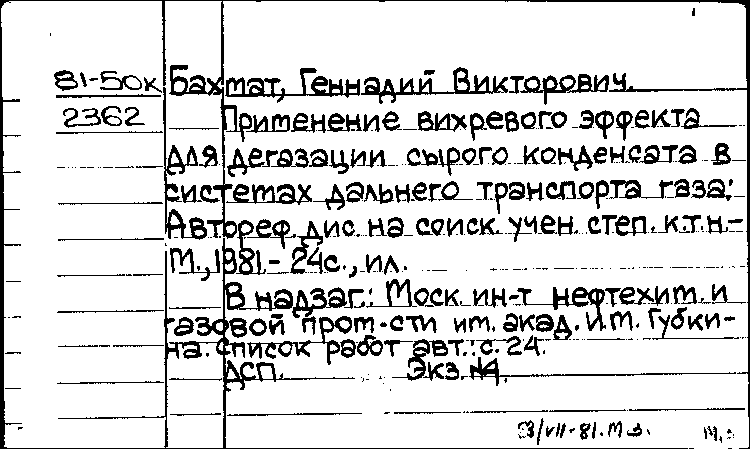 81-50к Бахмат, Геннадий Викторович.
2362 Применение вихревого эффекта
для дегазации сырого конденсата в
системах дальнего транспорта газа:
Автореф. дис. на соиск. учен. степ. к.т.н.-
М., 1981.- 24с., ил.
В надзаг.: Моск. ин-т нефтехим. и
газовой пром-сти им. акад. И.М. Губки-
на. Список работ авт.: с. 24.
ДСП. Экз. №4.
/VII-81.